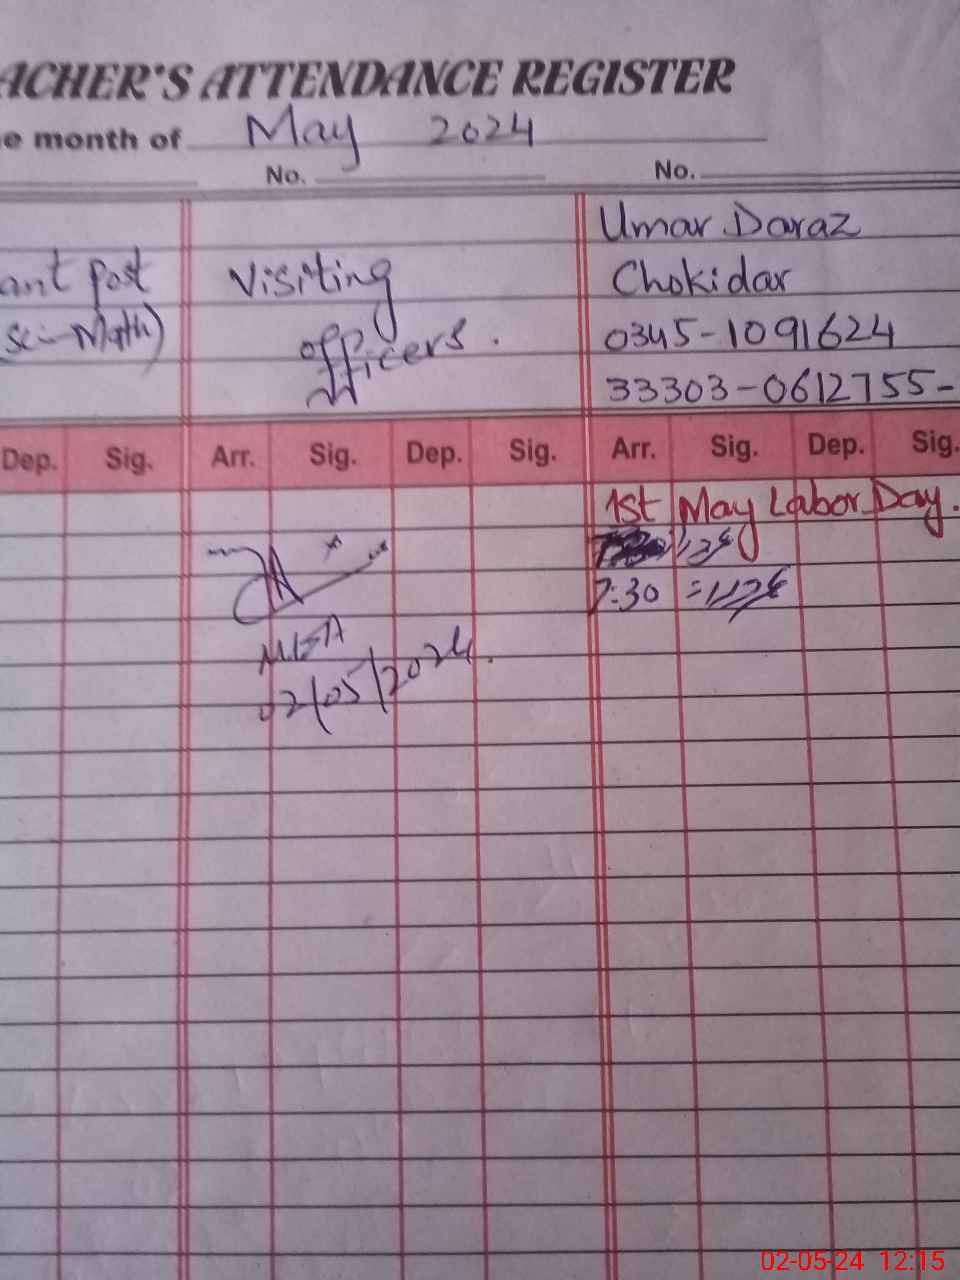 ACHER'S ATTENDANCE REGISTER
e month of May 2024
No. No.
ant Post
sc-Math)
Visiting
officers.
Umar Daraz
Chokidar
0345-1091624
33303-0612755-
Dep. Sig. Arr. Sig. Dep. Sig. Arr. Sig. Dep. Sig.
1st May Labor Day.
7:30
MEA
02/05/2024.
02-05-24 12:15